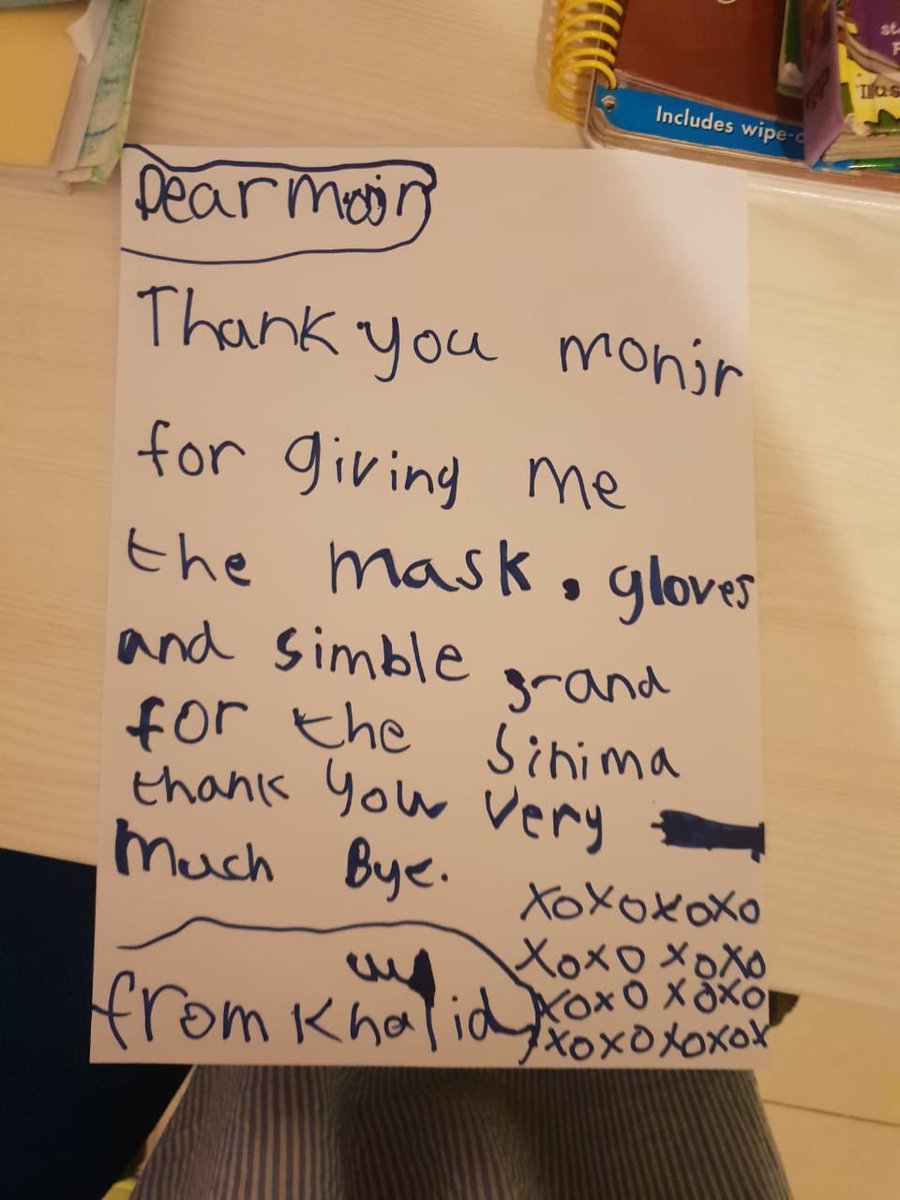 Includes wipe-
Dear
Thank you monir
for giving me
the mask. gloves
and simble grand
for the sinima
thank you very
much Bye.
xoxoxoxo
xoxo xoxo
xoxo xoxo
xoxoxoxox
from Khalid